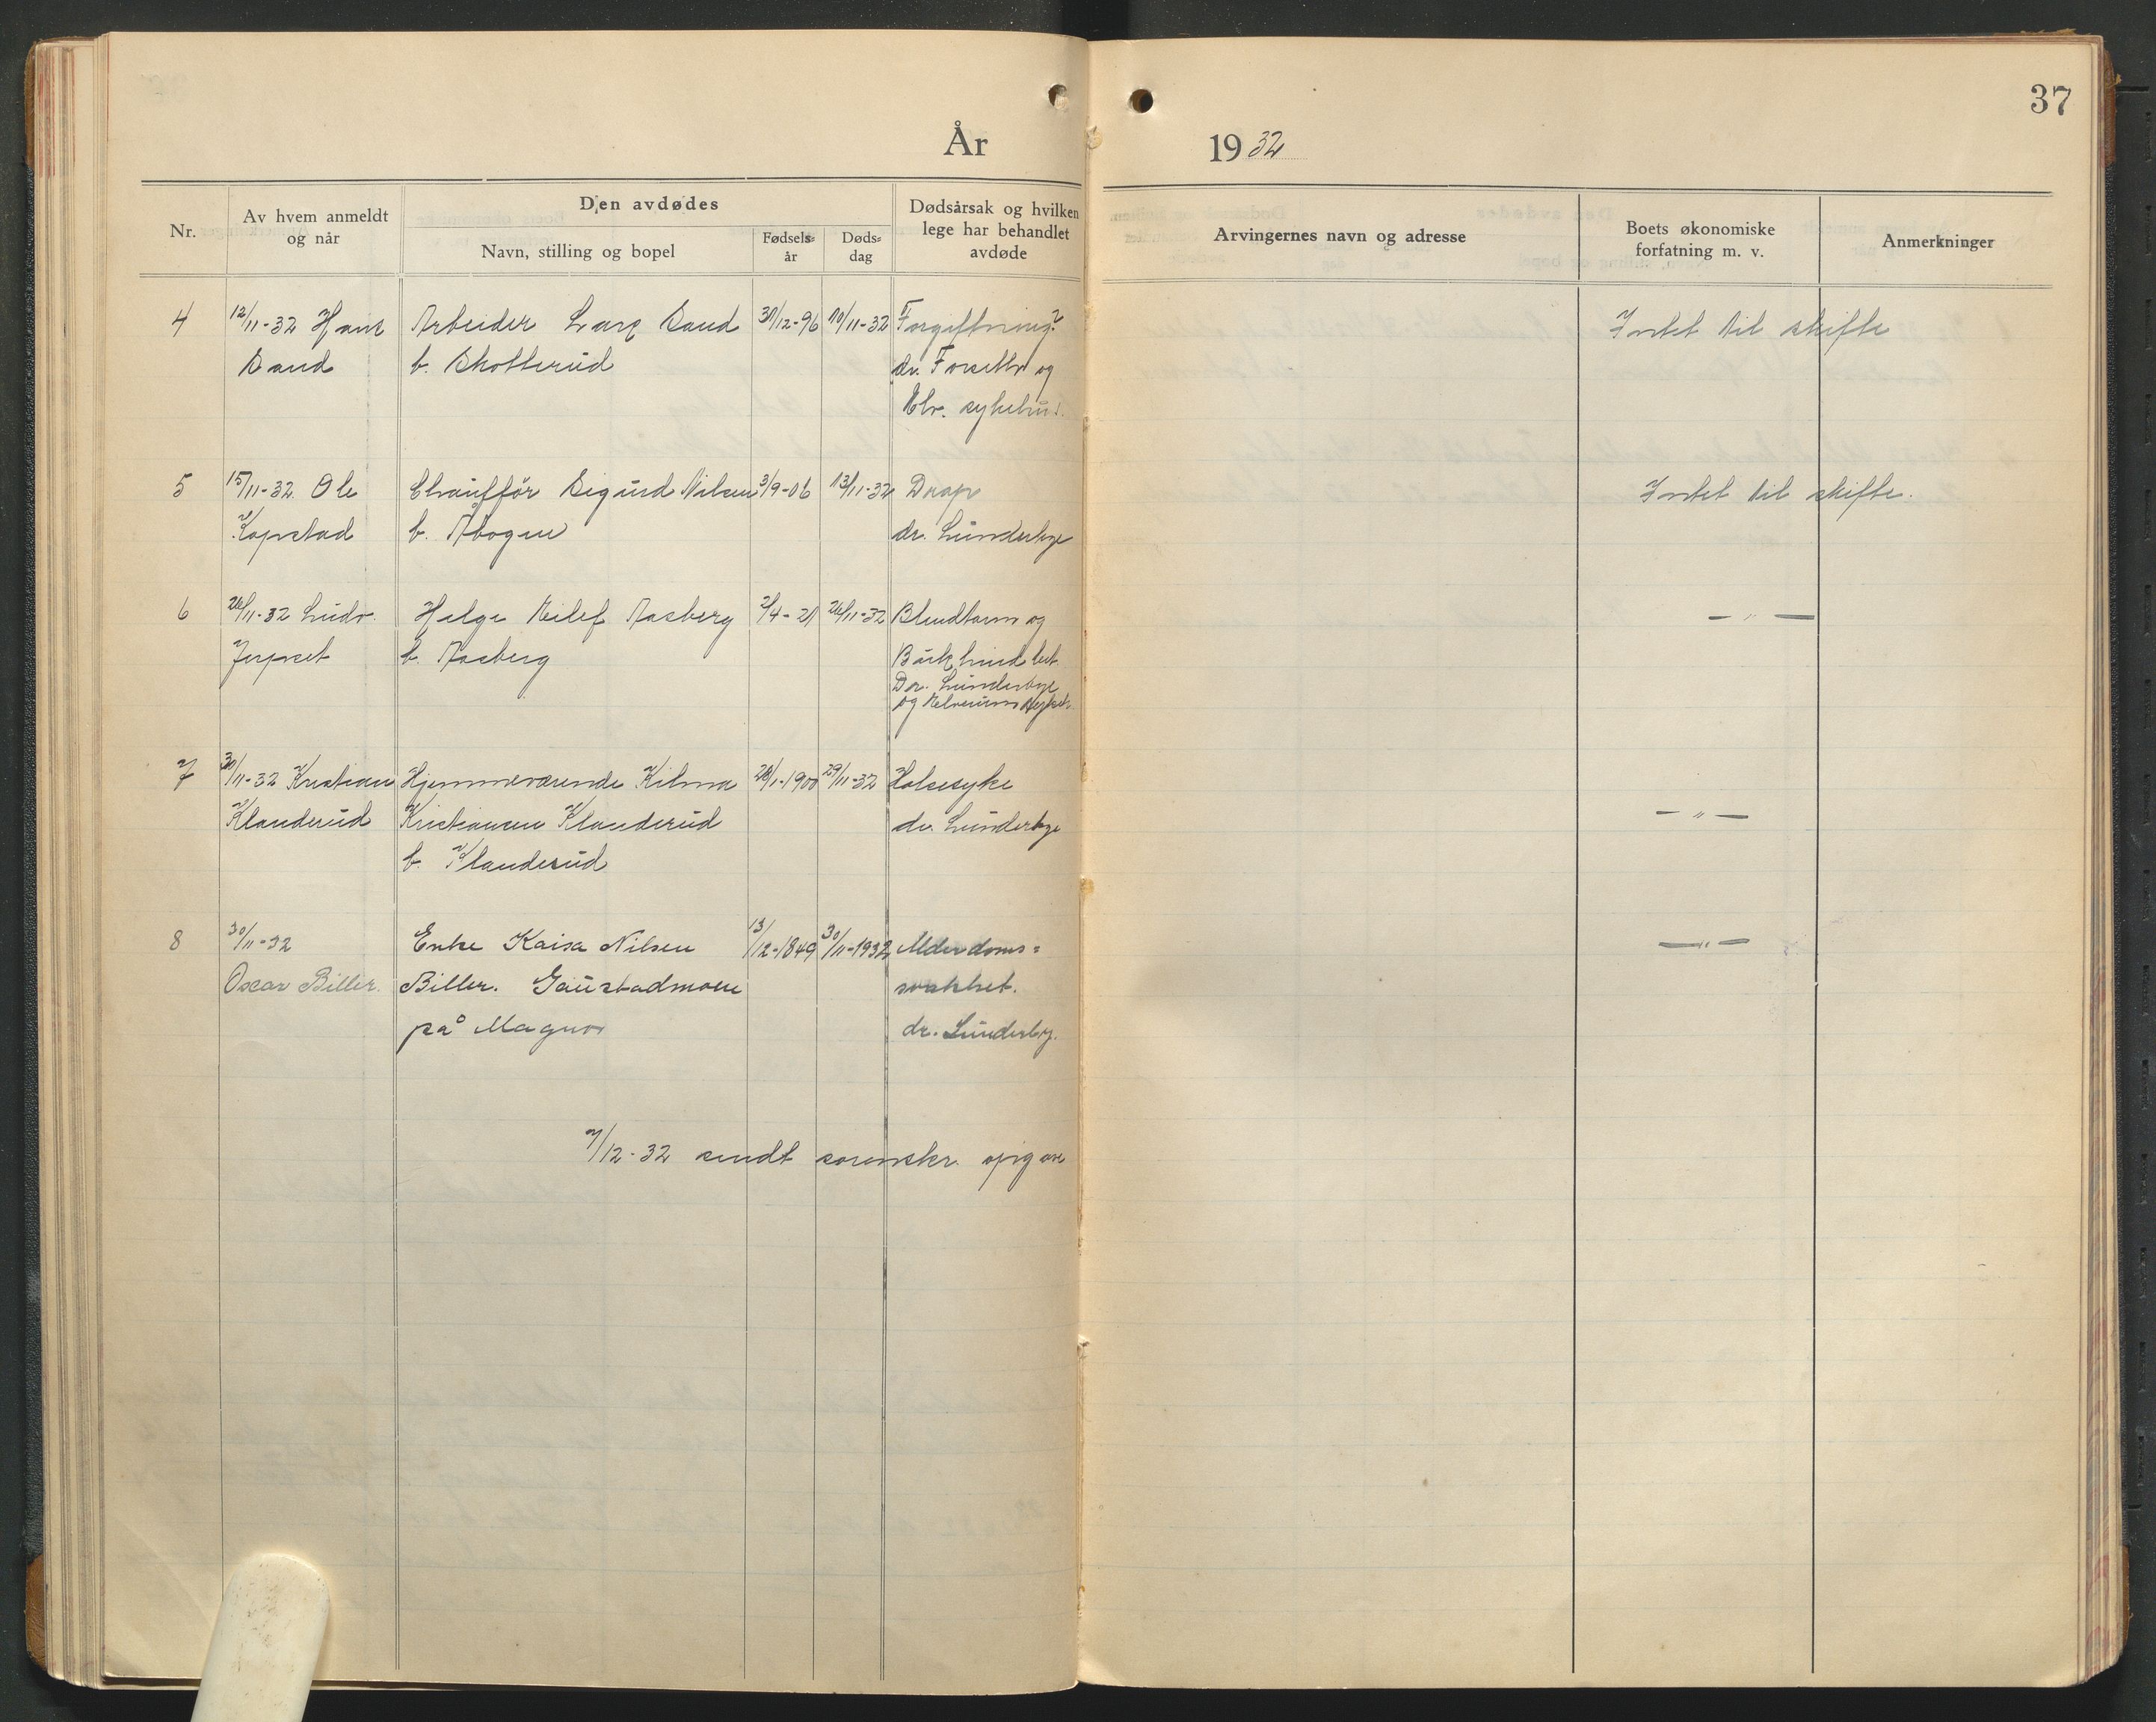 37
År 1932
Nr.
Av hvem anmeldt og når
Den avdødes
Navn, stilling og bopel
Fødsels= år
Døds= dag
Dødsårsak og hvilken lege har behandlet avdøde
Arvingernes navn og adresse
Boets økonomiske forfatning m. v.
Anmerkninger
4 12/11-32 Hans Arbeider Lars Sand 31/12-96 10/11-32 Forgiftning? Intet til skifte
Sand b. Skotterud dr. Forseth og
Elv. sykehus.
5 15/11-32 Ole Chauffør Sigurd Nilsen 3/9-06 13/11-32 Drap Intet til skifte.
Kopstad b. Åbogen dr. Lunderbye
6 26/11-32 Ludv. Helge Eilef Aasberg 2/4-21 26/11-32 Blindtarm og — " —
Jerpset b. Aasberg Bukhindebet.
Dr. Lunderbye
og Elverums sykeh.
7 30/11-32 Kristian Hjemmeværende Kilma 28/1-1900 29/11-32 Halsesyke — " —
Klanderud Kristiansen Klanderud dr. Lunderbye
b. Klanderud
8 30/11-32 Enke Kaisa Nilsen 13/12-1849 30/11-1932 Alderdoms= — " —
Oscar Biller. Biller. Gaustadmoen svakhet.
på Magnor dr. Lunderby.
7/12-32 sendt sorenskr. opgave